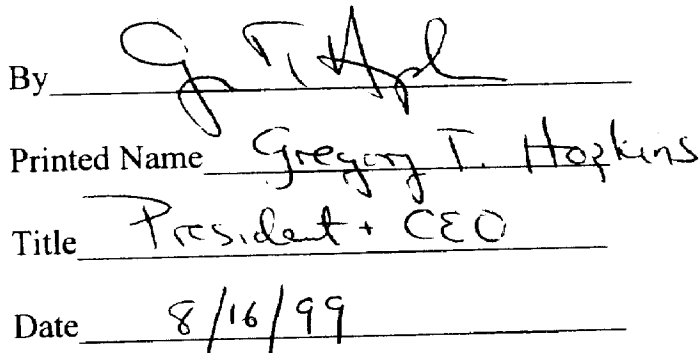 By
Printed Name Gregory T. Hopkins
Title President + CEO
Date 8/16/99